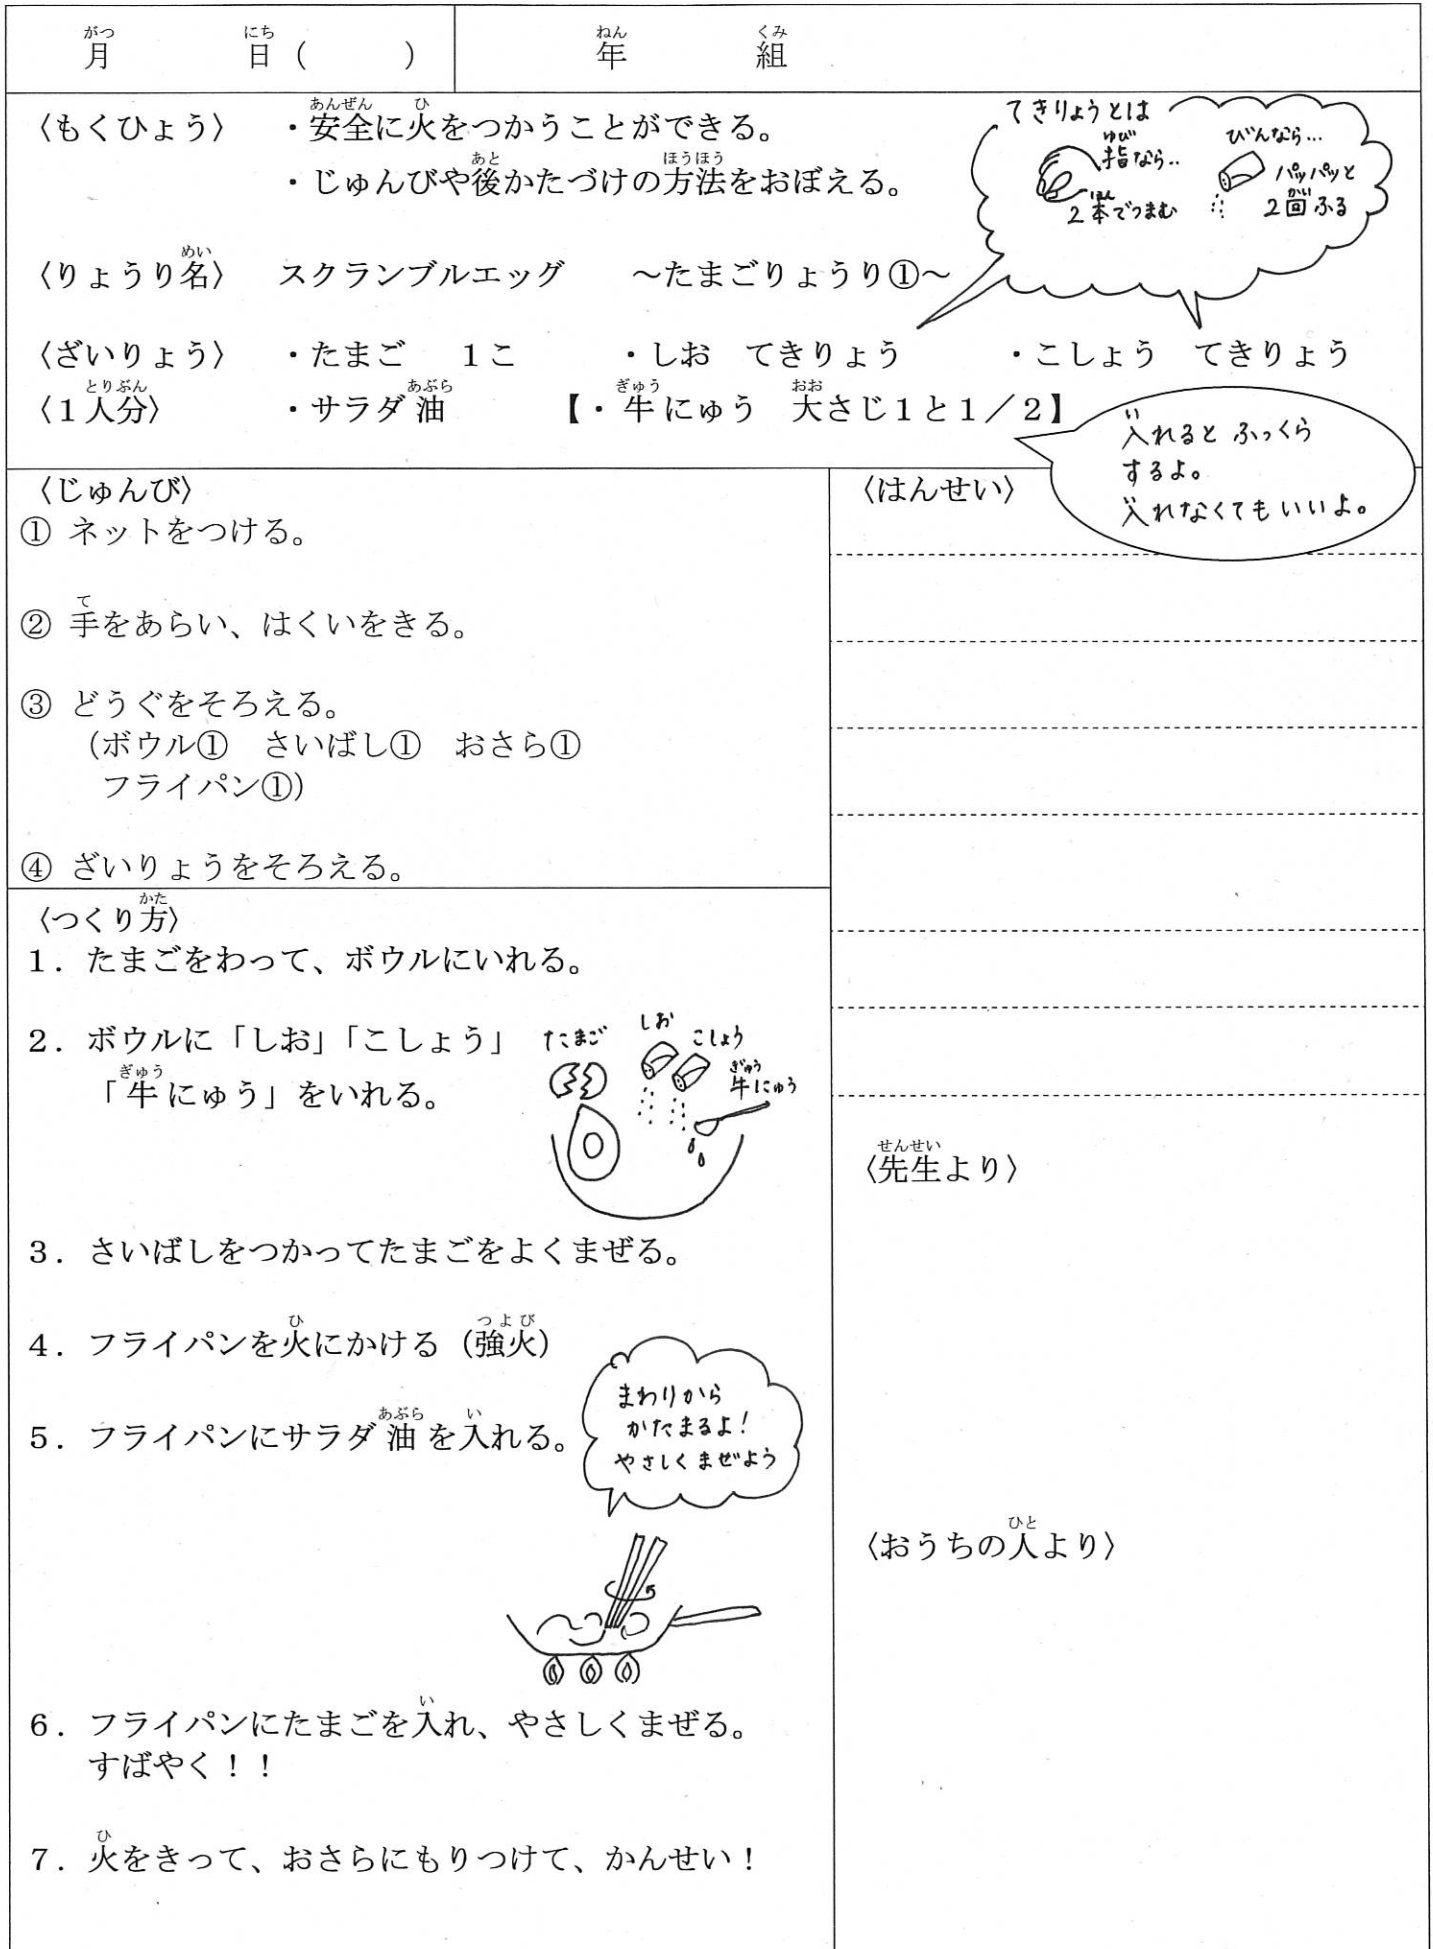 月 日（ ） 年 組
〈もくひょう〉 ・安全に火をつかうことができる。
・じゅんびや後かたづけの方法をおぼえる。
てきりょうとは
指なら..
2本でつまむ
びんなら...
パッパッと
2回ふる
〈りょうり名〉 スクランブルエッグ ～たまごりょうり①～
〈ざいりょう〉 ・たまご １こ ・しお てきりょう ・こしょう てきりょう
〈１人分〉 ・サラダ油 【・牛にゅう 大さじ１と１／２】
入れると ふっくら
するよ。
入れなくてもいいよ。
〈じゅんび〉
① ネットをつける。
② 手をあらい、はくいをきる。
③ どうぐをそろえる。
（ボウル① さいばし① おさら①
フライパン①）
④ ざいりょうをそろえる。
〈つくり方〉
１．たまごをわって、ボウルにいれる。
２．ボウルに「しお」「こしょう」
「牛にゅう」をいれる。
たまご
しお
こしょう
牛にゅう
３．さいばしをつかってたまごをよくまぜる。
４．フライパンを火にかける（強火）
５．フライパンにサラダ油を入れる。
まわりから
かたまるよ！
やさしくまぜよう
６．フライパンにたまごを入れ、やさしくまぜる。
すばやく！！
７．火をきって、おさらにもりつけて、かんせい！
〈はんせい〉
〈先生より〉
〈おうちの人より〉